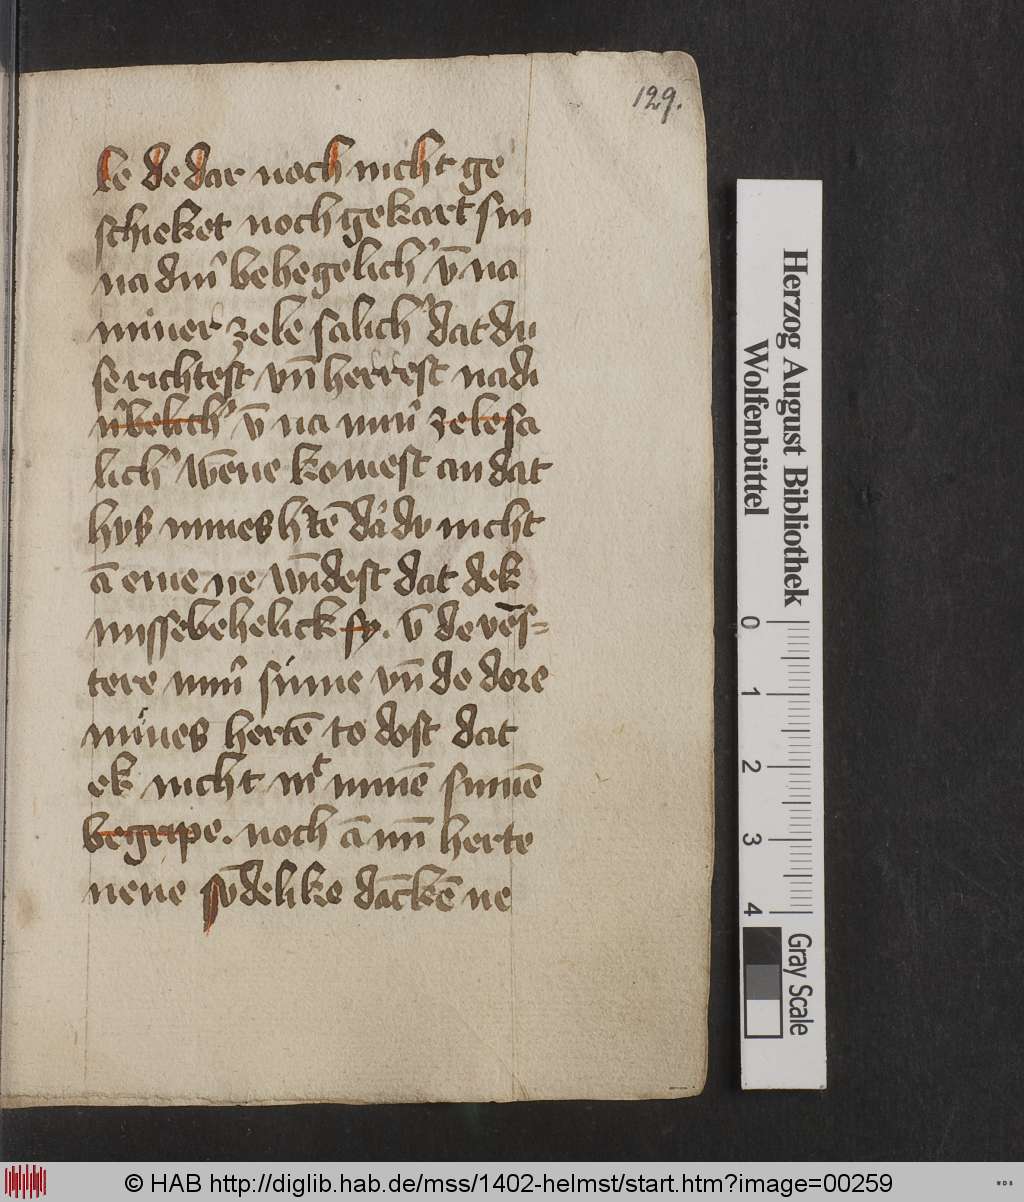 129.
le de dar noch nicht ge
schicket noch gekart sin
na diner behegelich' vn̄ na
miner zele salich' dat du
se richtest vnd herrest na di
n' belich' vn̄ na miner zele sa
lich' wēne komest an dat
hvs mines h'tē da du nicht
ā eme ne vīdest dat dek
missebehelick sy. vn̄ de vēs=
tere miner sinne vnd de dore
mines hertē to dost dat
ek nicht mit minē sinnē
begripe. noch ā mī herte
nene sv̄delike dāckē ne
Herzog August Bibliothek
Wolfenbüttel
0 1 2 3 4
Gray Scale
© HAB http://diglib.hab.de/mss/1402-helmst/start.htm?image=00259